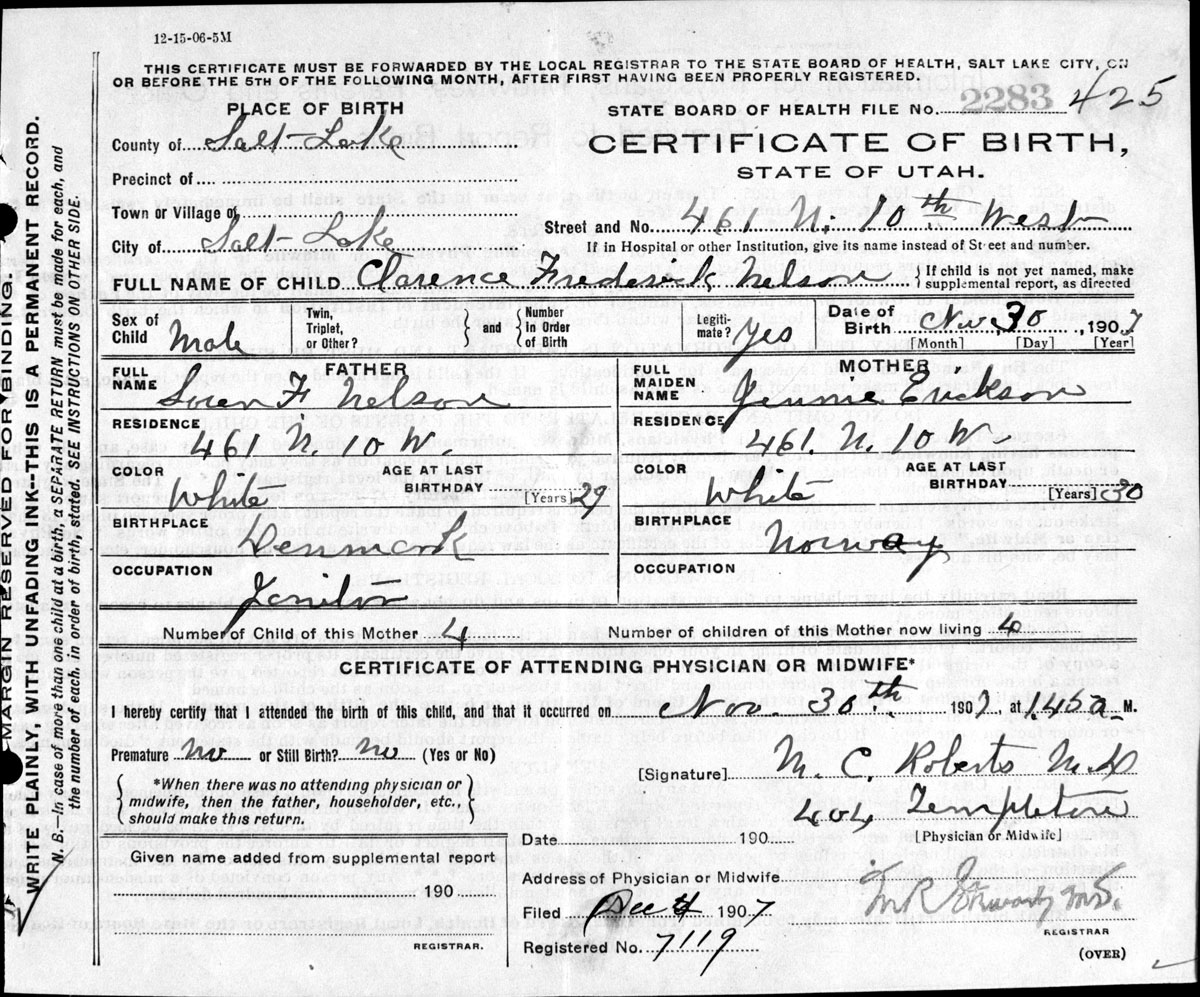 12-15-06-5M
THIS CERTIFICATE MUST BE FORWARDED BY THE LOCAL REGISTRAR TO THE STATE BOARD OF HEALTH, SALT LAKE CITY, ON
OR BEFORE THE 5TH OF THE FOLLOWING MONTH, AFTER FIRST HAVING BEEN PROPERLY REGISTERED.
PLACE OF BIRTH
STATE BOARD OF HEALTH FILE No. 2283 425
County of Salt Lake
CERTIFICATE OF BIRTH,
STATE OF UTAH.
Precinct of
Town or Village of
Street and No. 461 N. 10th West
City of Salt Lake
If in Hospital or other Institution, give its name instead of Street and number.
FULL NAME OF CHILD Clarence Frederick Nelson
{If child is not yet named, make
supplemental report, as directed
Sex of Child Male
Twin, Triplet, or Other? } and { Number in Order of Birth
Legitimate? Yes
Date of Birth Nov 30, 1907
[Month] [Day] [Year]
FATHER
FULL NAME Soren F. Nelson
RESIDENCE 461 N. 10 W.
COLOR White
AGE AT LAST BIRTHDAY 29 [Years]
BIRTHPLACE Denmark
OCCUPATION Janitor
MOTHER
FULL MAIDEN NAME Jennie Erickson
RESIDENCE 461. N. 10 W.
COLOR White
AGE AT LAST BIRTHDAY [Years] 30
BIRTHPLACE Norway
OCCUPATION
Number of Child of this Mother 4
Number of children of this Mother now living 4
CERTIFICATE OF ATTENDING PHYSICIAN OR MIDWIFE*
I hereby certify that I attended the birth of this child, and that it occurred on Nov. 30th 1907 at 1.45 a M.
Premature no or Still Birth? no (Yes or No)
[Signature] M. C. Roberts M.D
{*When there was no attending physician or
midwife, then the father, householder, etc.,
should make this return.}
404 Templeton
Date 190
[Physician or Midwife]
Given name added from supplemental report
190
REGISTRAR.
Address of Physician or Midwife
Filed Dec 4 1907
REGISTRAR
Registered No. 7119
(OVER)
MARGIN RESERVED FOR BINDING.
WRITE PLAINLY, WITH UNFADING INK--THIS IS A PERMANENT RECORD.
N. B.—In case of more than one child at a birth, a SEPARATE RETURN must be made for each, and
the number of each, in order of birth, stated. SEE INSTRUCTIONS ON OTHER SIDE.